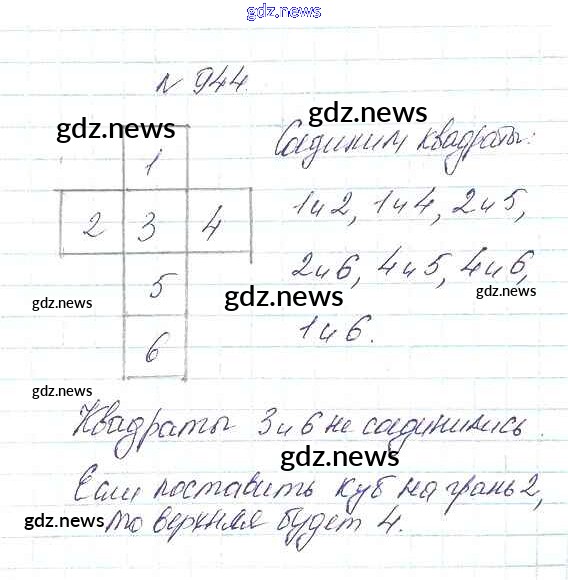 gdz.news
№ 944
gdz.news
gdz.news
Соединим квадраты:
1
1 и 2, 1 и 4, 2 и 5,
2 3 4
2 и 6, 4 и 5, 4 и 6,
gdz.news
gdz.news
gdz.news
5
1 и 6.
6
gdz.news
gdz.news
Квадраты 3 и 6 не соединились.
gdz.news
Если поставить куб на грань 2,
gdz.news
gdz.news
то верхняя будет 4.
gdz.news